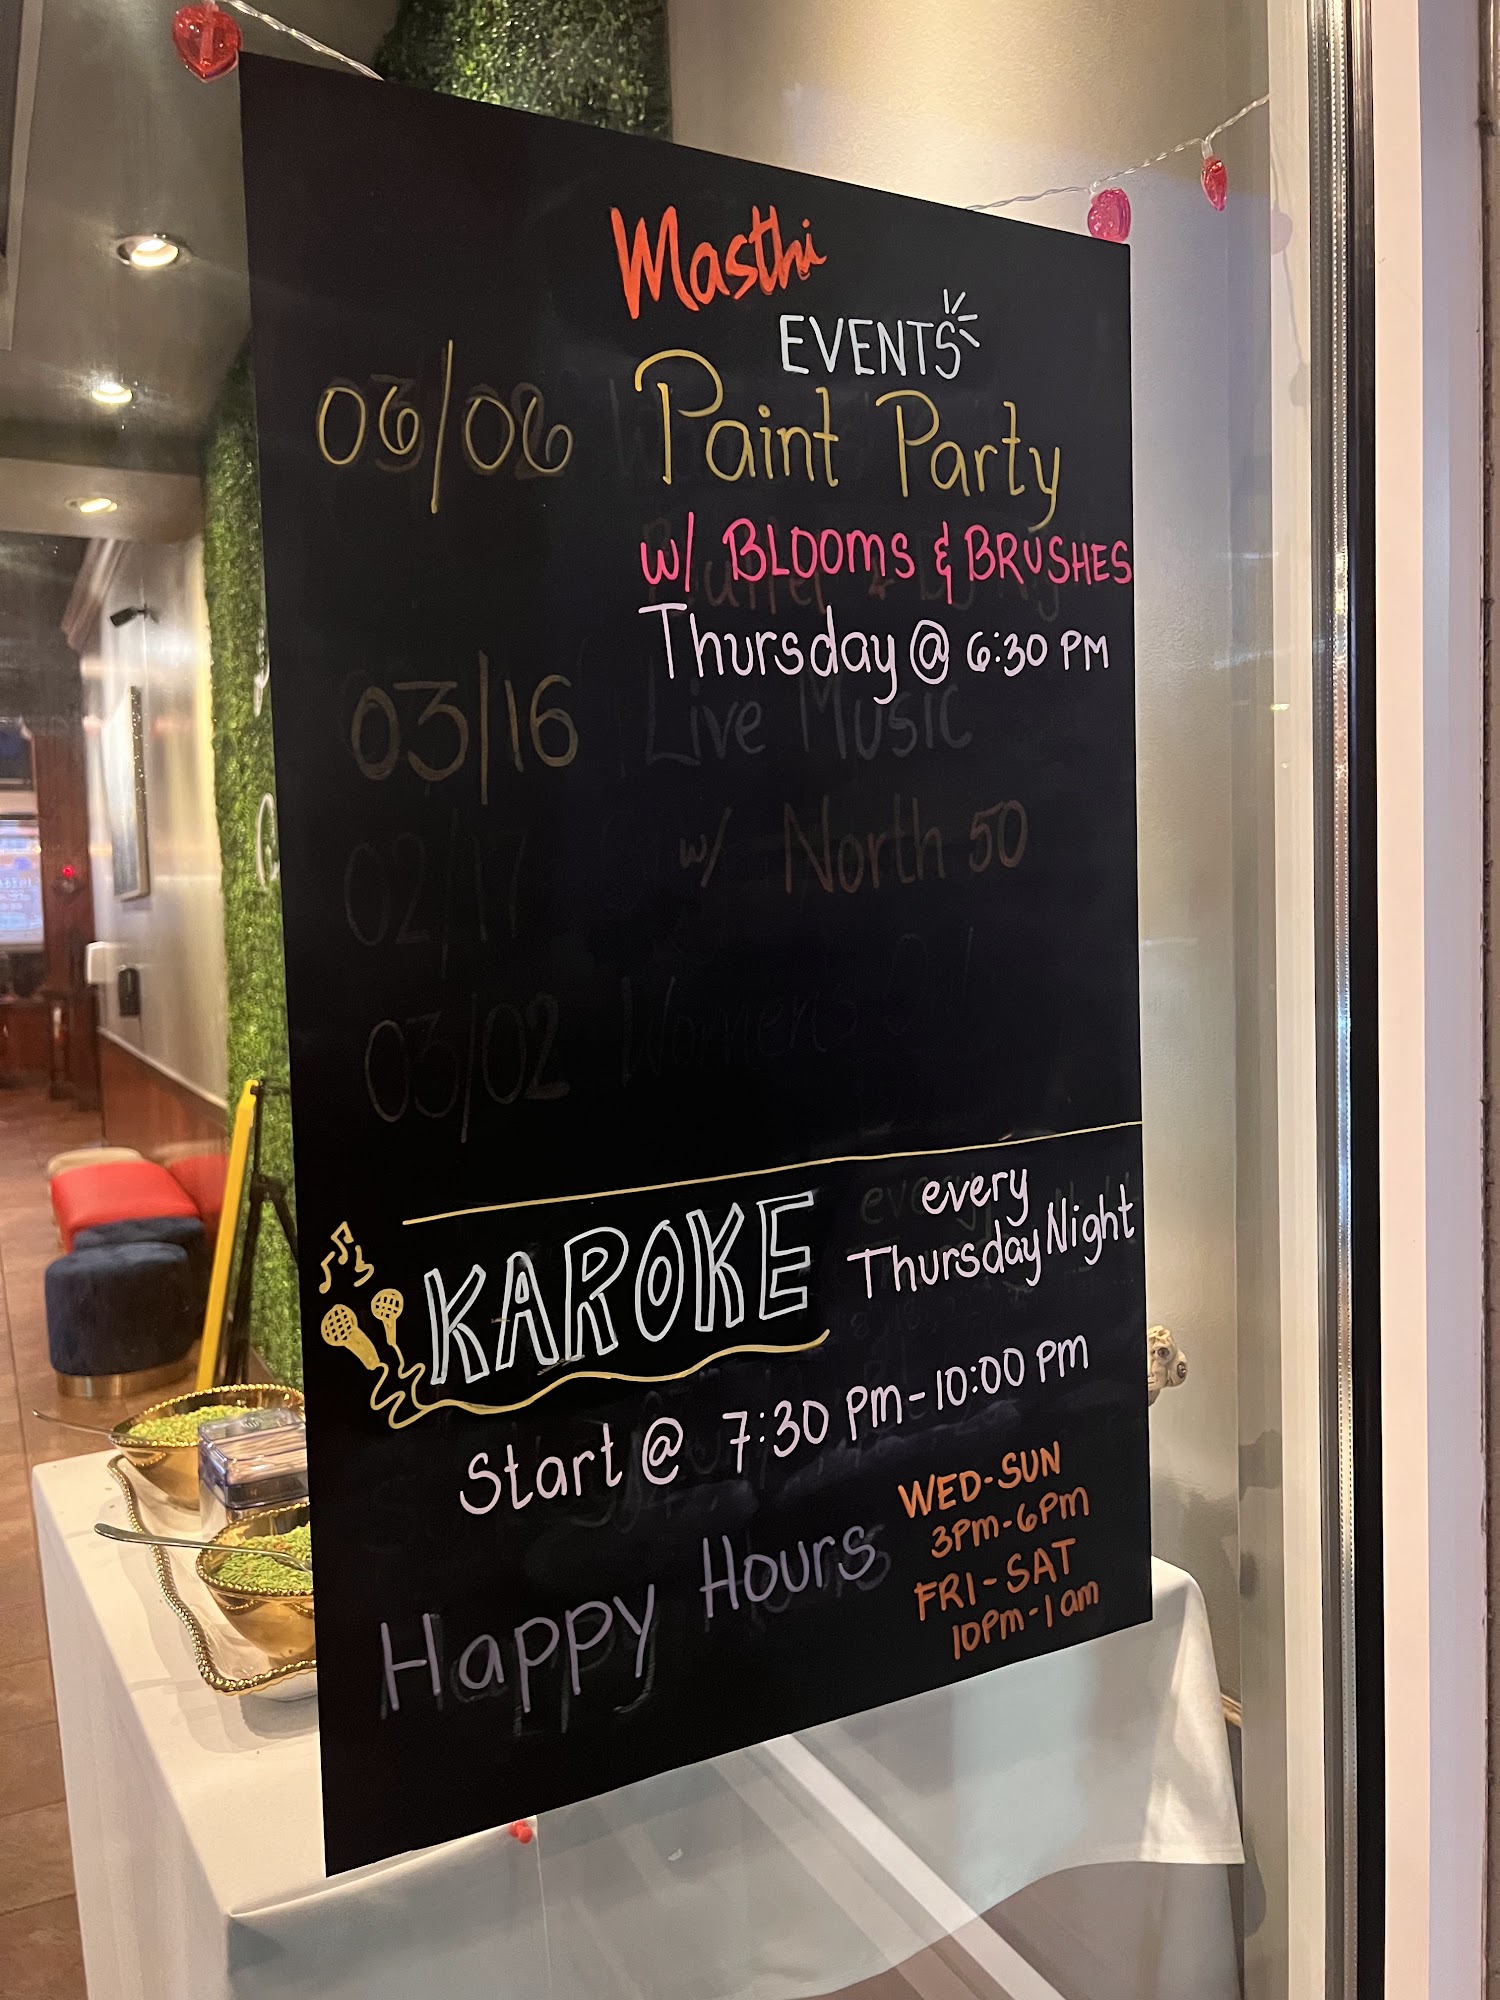 Masthi
EVENTS
06/06 Paint Party
w/ BLOOMS & BRUSHES
Thursday @ 6:30 PM
03/16 Live Music
02/17 w/ North 50
03/02 Women's
KAROKE every
Thursday Night
Start @ 7:30 PM - 10:00 PM
Happy Hours WED-SUN
3PM-6PM
FRI-SAT
10PM-1am